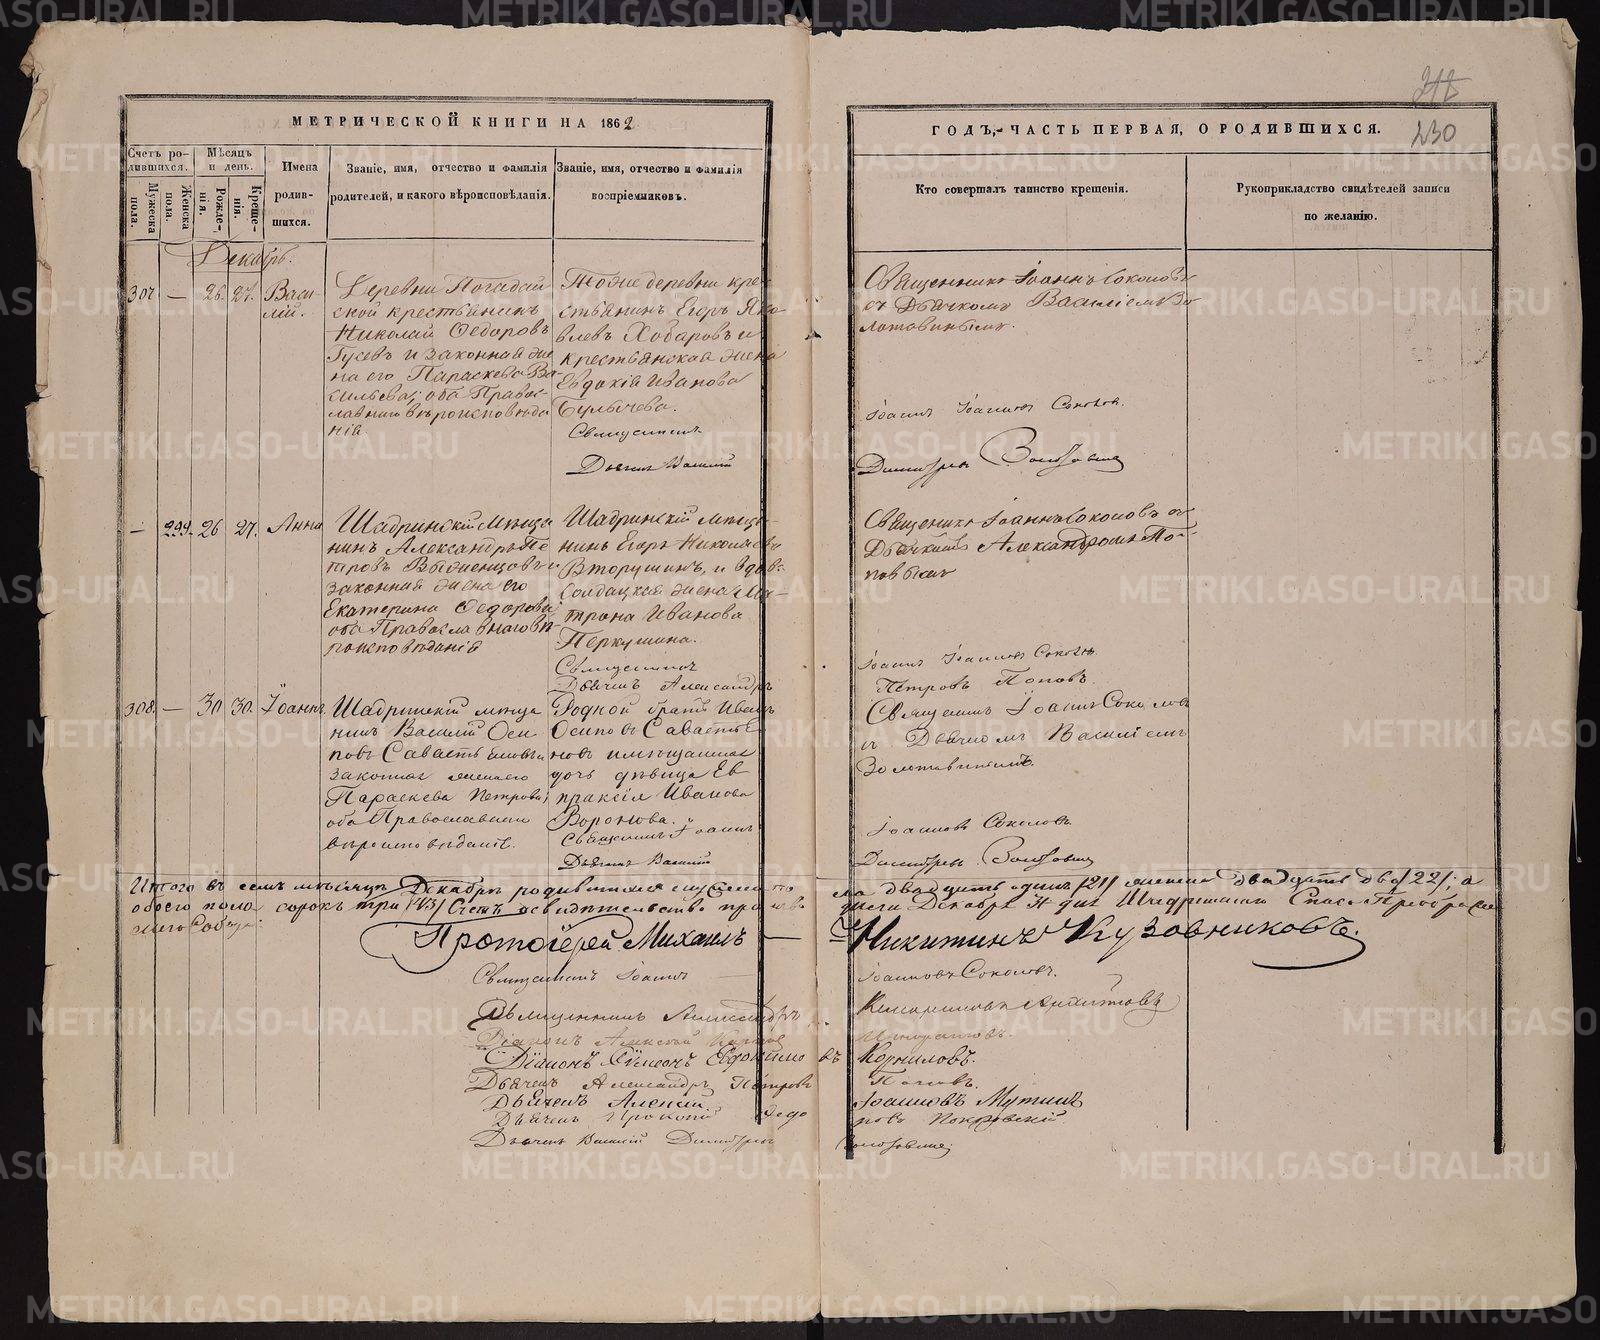 МЕТРИЧЕСКОЙ КНИГИ НА 1862
ГОДЪ, ЧАСТЬ ПЕРВАЯ, О РОДИВШИХСЯ.
230
Счетъ ро-
дившихся.
Мужеска
пола.
Женска
пола.
Мѣсяцъ
и день.
Рожде-
нія.
Креще-
нія.
Имена
родив-
шихся.
Званіе, имя, отчество и фамилія
родителей, и какого вѣроисповѣданія.
Званіе, имя, отчество и фамилія
воспріемниковъ.
Кто совершалъ таинство крещенія.
Рукоприкладство свидѣтелей записи
по желанію.
Декабрь.
307 — 26. 27. Васи-
лій.
Деревни Погадай
ской крестьянинъ
Николай Ѳедоровъ
Гусевъ и законная же
на его Параскева Ва-
сильева; оба Право-
славнаго вѣроисповѣда
нія.
Тоже деревни кре-
стьянинъ Егоръ Яко
влевъ Хобаровъ и
крестьянская жена
Евдокія Иванова
Булычева.
Священникъ
Дьячекъ Василій
Священникъ Іоаннъ Соколовъ
съ Дьячкомъ Василіемъ Зо
лотавинымъ.
Іоаннъ Іоанновъ Соколовъ.
Димитріевъ Золотавинъ
— 299. 26 27. Анна
Шадринскій мѣща
нинъ Александръ Пе
тровъ и
законная жена его
Екатерина Ѳедорова;
оба Православнаго вѣ-
роисповѣданія
Шадринскій мѣща-
нинъ Егоръ Николаевъ
Вторушинъ, и вдова
Солдацкая жена Ма-
трона Иванова
Перкушина.
Священникъ
Дьячекъ Александръ
Священникъ Іоаннъ Соколовъ съ
Дьячкомъ Александромъ По-
повымъ
Іоаннъ Іоанновъ Соколовъ
Петровъ Поповъ.
308. — 30. 30. Іоаннъ
Шадринскій мѣща
нинъ Василій Оси
повъ и
законная жена его
Параскева Петрова;
оба Православнаго
вѣроисповѣданія.
Родной братъ Иванъ
Осиповъ
новъ и мѣщанская
дочь дѣвица Ев
праксія Иванова
Воронова.
Священникъ Іоаннъ
Дьячекъ Василій
Священникъ Іоаннъ Соколовъ
съ Дьячкомъ Василіемъ
Золотавинымъ.
Іоанновъ Соколовъ.
Димитріевъ Золотавинъ
Итого въ семъ мѣсяцѣ Декабрѣ родившихся мужеска по
ла двадцать одинъ /21/ женска двадцать два /22/; а
обоего пола сорокъ три /43/ Счетъ
Шадринскаго Спасо-Преображен
скаго Собора:
Протоіерей Михаилъ — Никитинъ Кузовниковъ.
Священникъ Іоаннъ — Іоанновъ Соколовъ.
Священникъ Александръ
Діаконъ Алексѣй
Діаконъ Сѵмеонъ Евдокимовъ Корниловъ.
Дьячекъ Александръ Петровъ Поповъ.
Дьячекъ Алексій Іоанновъ Мутинъ
Дьячекъ Прокопій Ѳедоровъ Покровскій
Дьячекъ Василій Димитріевъ Золотавинъ
METRIKI.GASO-URAL.RU